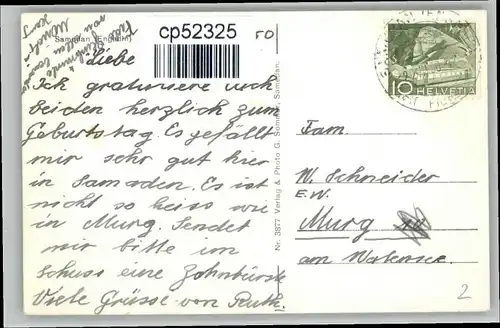 Samedan (Engadin)
cp52325
50
Liebe
Ich gratuliere euch
beiden herzlich zum
Geburtstag. Es gefällt
mir sehr gut hier
in Samaden. Es ist
nicht so heiss wie
in Murg. Sendet
mir bitte im
Schuss eine Zahnbürste
Viele Grüsse von Ruth.
Nr. 3877 Verlag & Photo G. Sommer, Samedan.
10 HELVETIA
Fam.
W. Schneider
E.W.
Murg
am Walensee.
2